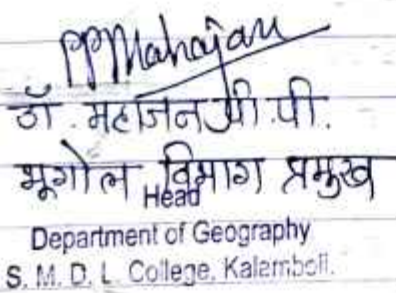 PPMahajan
डॉ. महाजन पी.पी.
भूगोल विभाग प्रमुख
Head
Department of Geography
S. M. D. L. College, Kalamboli.